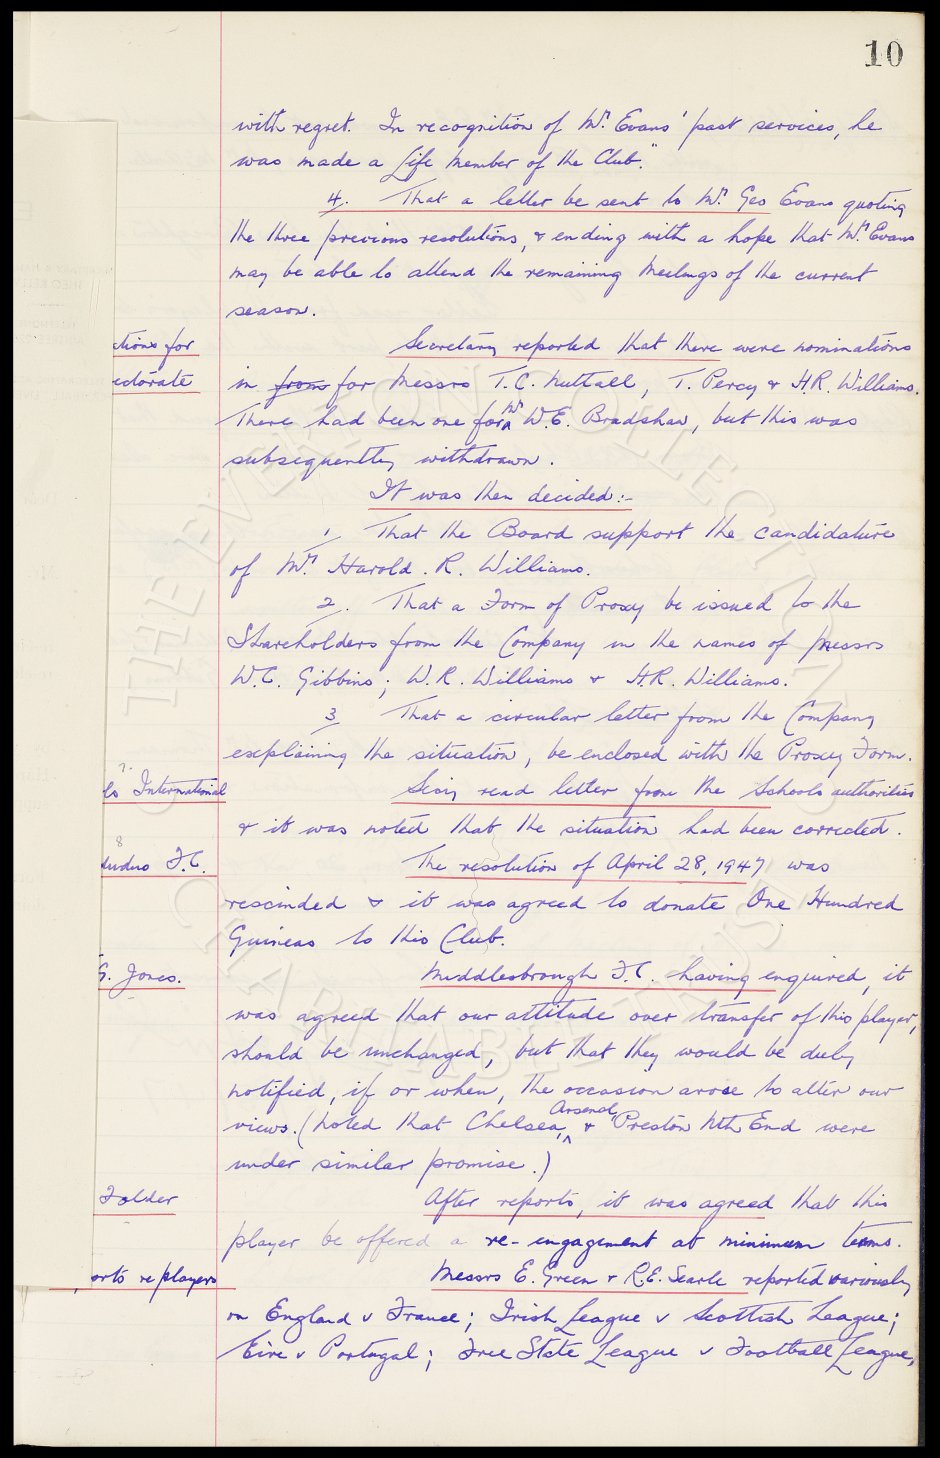 10
with regret. In recognition of Mr. Evans' past services, he
was made a Life Member of the Club."
4. That a letter be sent to Mr. Geo Evans quoting
the three previous resolutions, & ending with a hope that Mr. Evans
may be able to attend the remaining meetings of the current
season.
ctions for
Secretary reported that there were nominations
ectorate
in from for Messrs T.C. Nuttall, T. Percy & H.R. Williams.
There had been one for Mr W.E. Bradshaw, but this was
subsequently withdrawn.
It was then decided:-
1. That the Board support the candidature
of Mr. Harold. R. Williams.
2. That a Form of Proxy be issued to the
Shareholders from the Company in the names of Messrs
W.C. Gibbins; W.R. Williams & H.R. Williams.
3 That a circular letter from the Company
explaining the situation, be enclosed with the Proxy Form.
7.
ls International
Secy read letter from the Schools authorities
& it was noted that the situation had been corrected.
8
dudno F.C.
The resolution of April 28, 1947 was
rescinded & it was agreed to donate One Hundred
Guineas to this Club.
G. Jones.
Middlesbrough F.C. having enquired, it
was agreed that our attitude over transfer of this player,
should be unchanged, but that they would be duly
notified, if or when, the occasion arose to alter our
views. (Noted that Chelsea, Arsenal, & Preston Nth End were
under similar promise.)
Folder
After reports, it was agreed that this
player be offered a re-engagement at minimum terms.
orts re players
Messrs E. Green & R.E. Searle reported variously
on England v France; Irish League v Scottish League;
Eire v Portugal; Free State League v Football League,
THE EVERTON COLLECTION
CHARITABLE TRUST